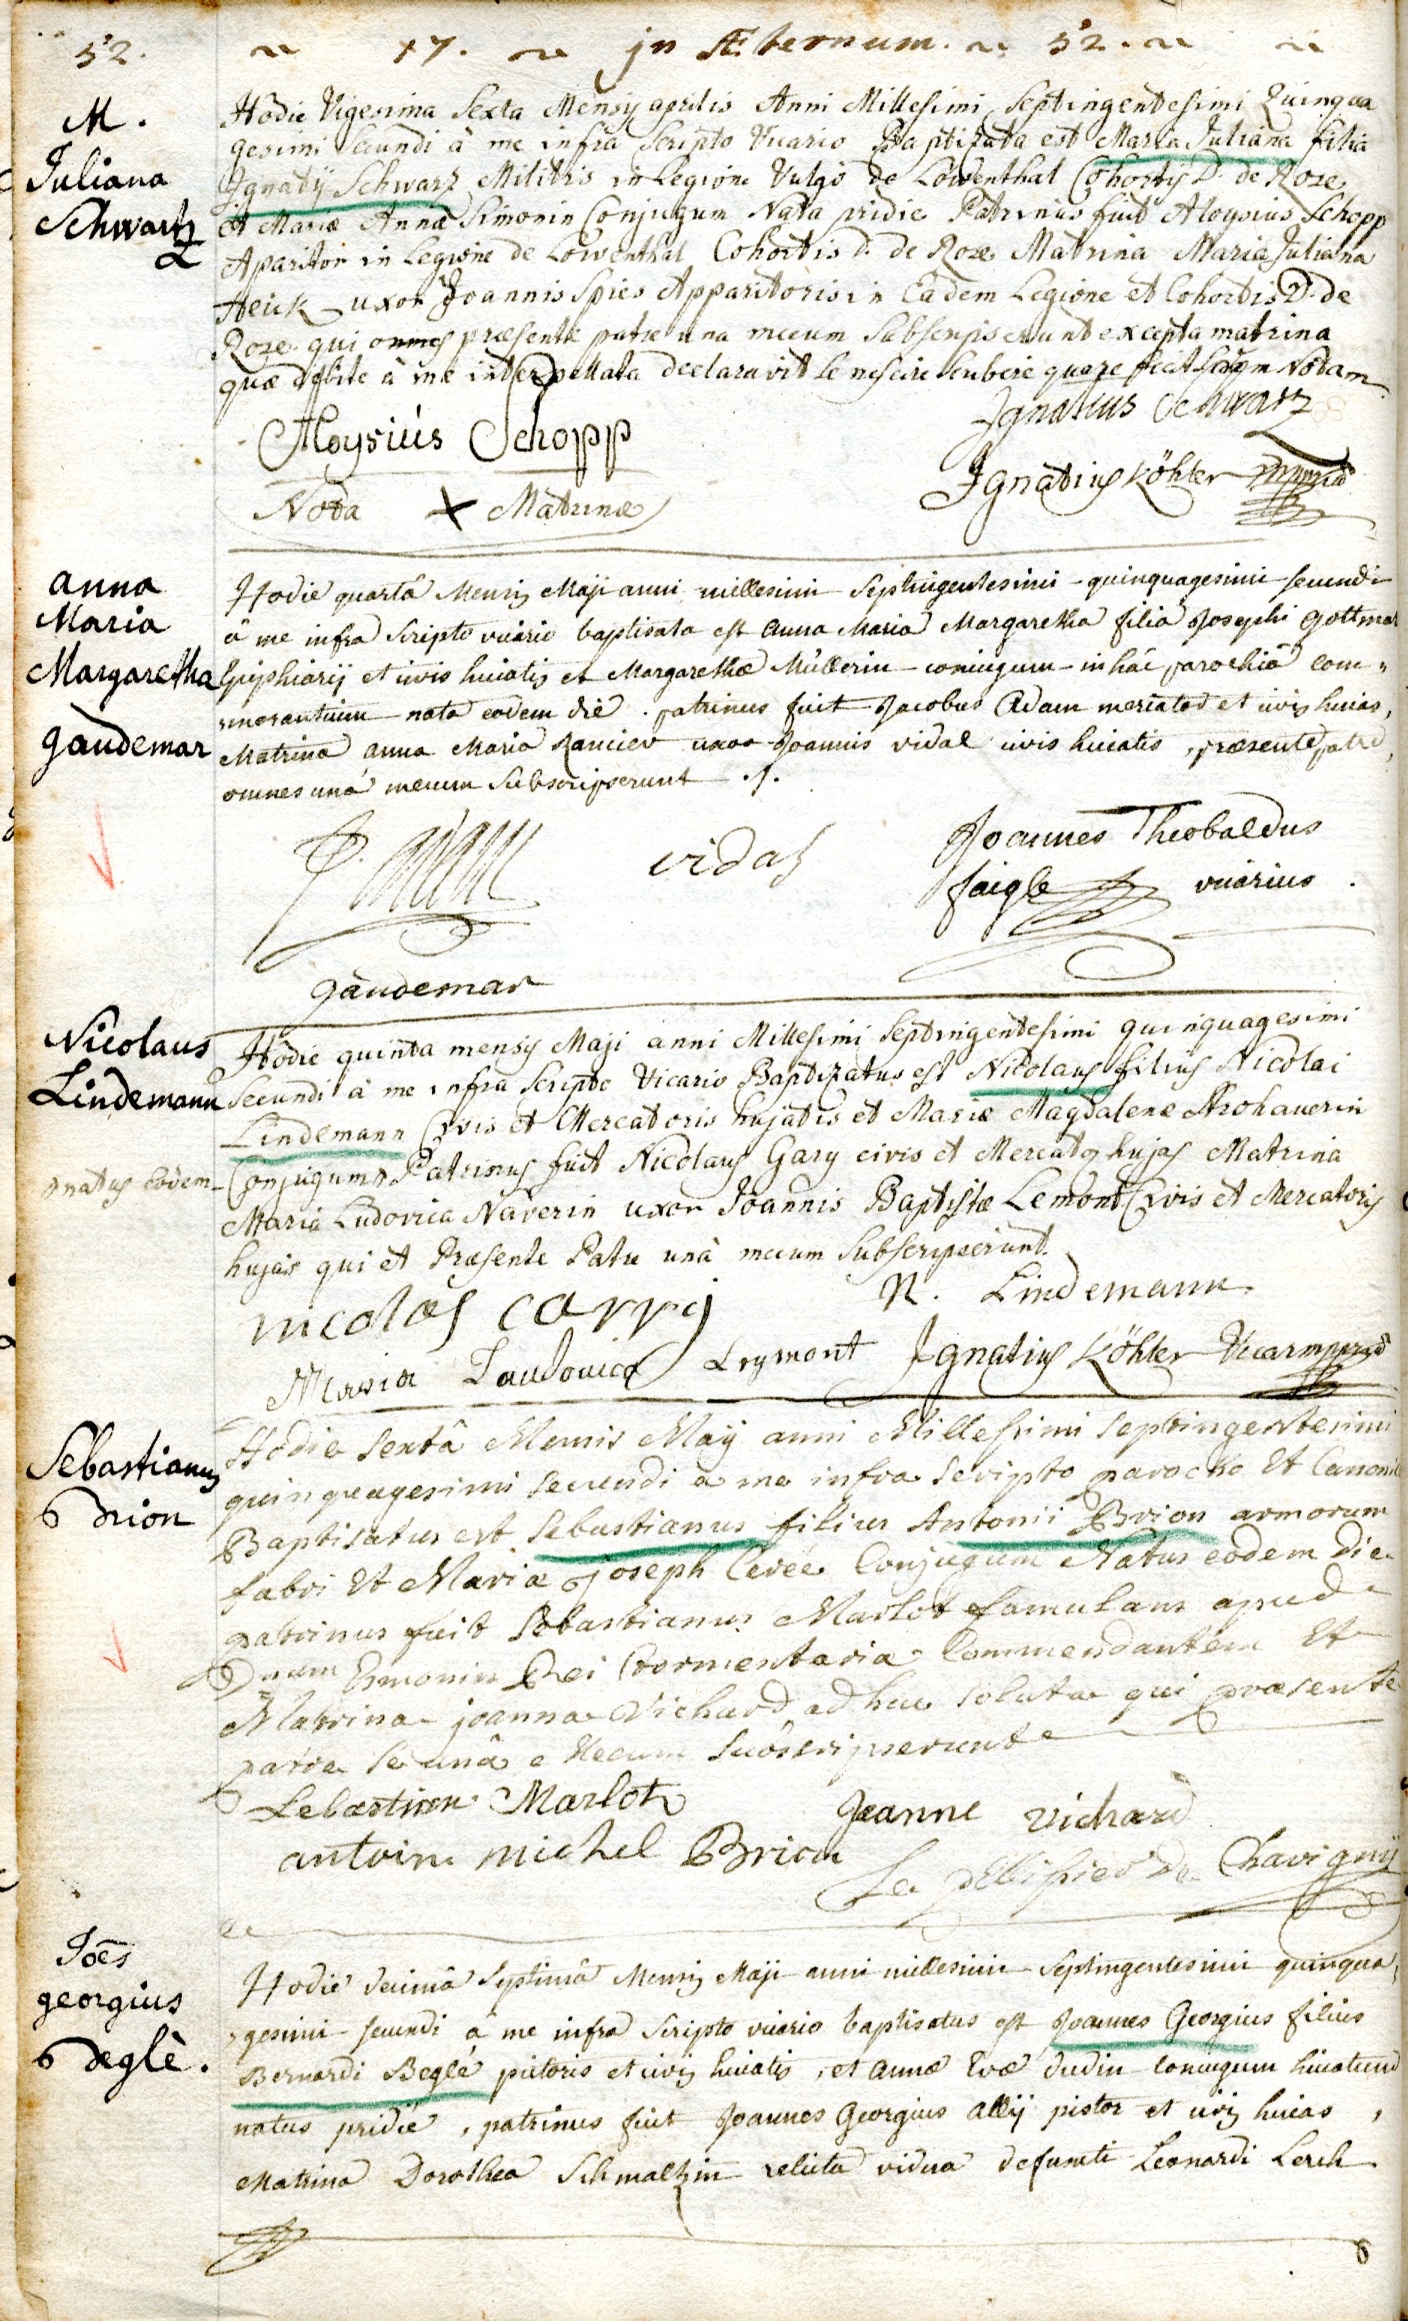 52. ~ 17. ~ jn Æternum. ~ 52. ~ ~
M.
Juliana
Schwartz
Hodie Vigesima Sexta Mensis aprilis Anni Millesimi Septingentesimi Quinqua
gesimi Secundi à me infra Scripto Vicario Baptizata est Maria Juliana filia
Ignatij Schwarz Militis in Legione Vulgò de Löwenthal Cohortis D. de Roze
et Mariæ Annæ Simonin Conjugum Nata pridie Patrinus fuit Aloysius Schopp
Aparitor in Legione de Lowenthal Cohortis D. de Roze Matrina Maria Juliana
Heick uxor Joannis Spies Apparitoris in Eadem Legione et Cohortis D. de
Roze qui omnes præsente patre una mecum Subscripserunt excepta matrina
quæ debite à me interpellata declaravit Se nescire Scribere quare fecit Notam
Ignatius Schwarz
Aloysiús Schopp
Ignatius Köhler
Nota X Matrinæ
anna
Maria
Margaretha
gaudemar
Hodie quartâ Mensis Maji anni millesimi Septingentesimi quinquagesimi secundi
â me infra Scripto vicario baptisata est Anna Maria Margaretha filia Josephi Gottmar
et civis huiatis et Margarethæ Müllerin coniugum in hâc parochiâ com-
morantium nata eodem die. patrinus fuit Jacobus Adam et civis huias,
Matrina anna Maria uxor Joannis vidal civis huiatis, præsente patre,
omnes unà mecum Subscripserunt ./.
vidal
Joannes Theobaldus
faigle vicarius.
gaudemar
Nicolaus
Lindemann
Hodie quinta mensis Maji anni Millesimi Septingentesimi quinquagesimi
Secundi à me infra Scripto Vicario Baptizatus est Nicolaus filius Nicolai
Lindemann Civis et Mercatoris hujatis et Mariæ Magdalenæ
natus eodem
Conjugum Patrinus fuit Nicolaus Gary civis et Mercator hujas Matrina
Maria Ludovica Naverin uxor Joannis Baptistæ Lemont Civis et Mercatoris
hujas qui et Præsente Patre unà mecum Subscripserunt.
N. Lindemann
nicolas carrÿ
Maria Laudovica Leymont Ignatius Köhler
Sebastianus
Brion
Hodie Sextâ Mensis Maÿ anni Millesimi Septingentesimi
quinquagesimi Secundi a me infra Scripto parocho Et Canoni
Baptisatus est Sebastianus filius Antonii Brion armorum
fabri Et Mariæ joseph Cerée Conjugum Natus eodem die
patrinus fuit Sebastianus Marlot famulans apud
Dnum Rei tormentariæ Commendantem Et
Matrina joanna Vichard ad huc soluta qui præsente
patre Se unâ Mecum Subscripserunt
Sebastien Marlot
Jeanne vichard
antoine michel Brion
Le de Chavignÿ
Joēs
georgius
Beglè.
Hodie decimâ Septimâ Mensis Maji anni millesimi Septingentesimi quinqua,
,gesimi secundi â me infra Scripto vicario baptisatus est Joannes Georgius filius
Bernardi Beglé pistoris et civis huiatis, et Annæ Evæ Dudin coniugum huiatium
natus pridie, patrinus fuit Joannes Georgius Allÿ pistor et civis huias,
Matrina Dorothea Schmaltzin relicta vidua defuncti Leonardi Lerch